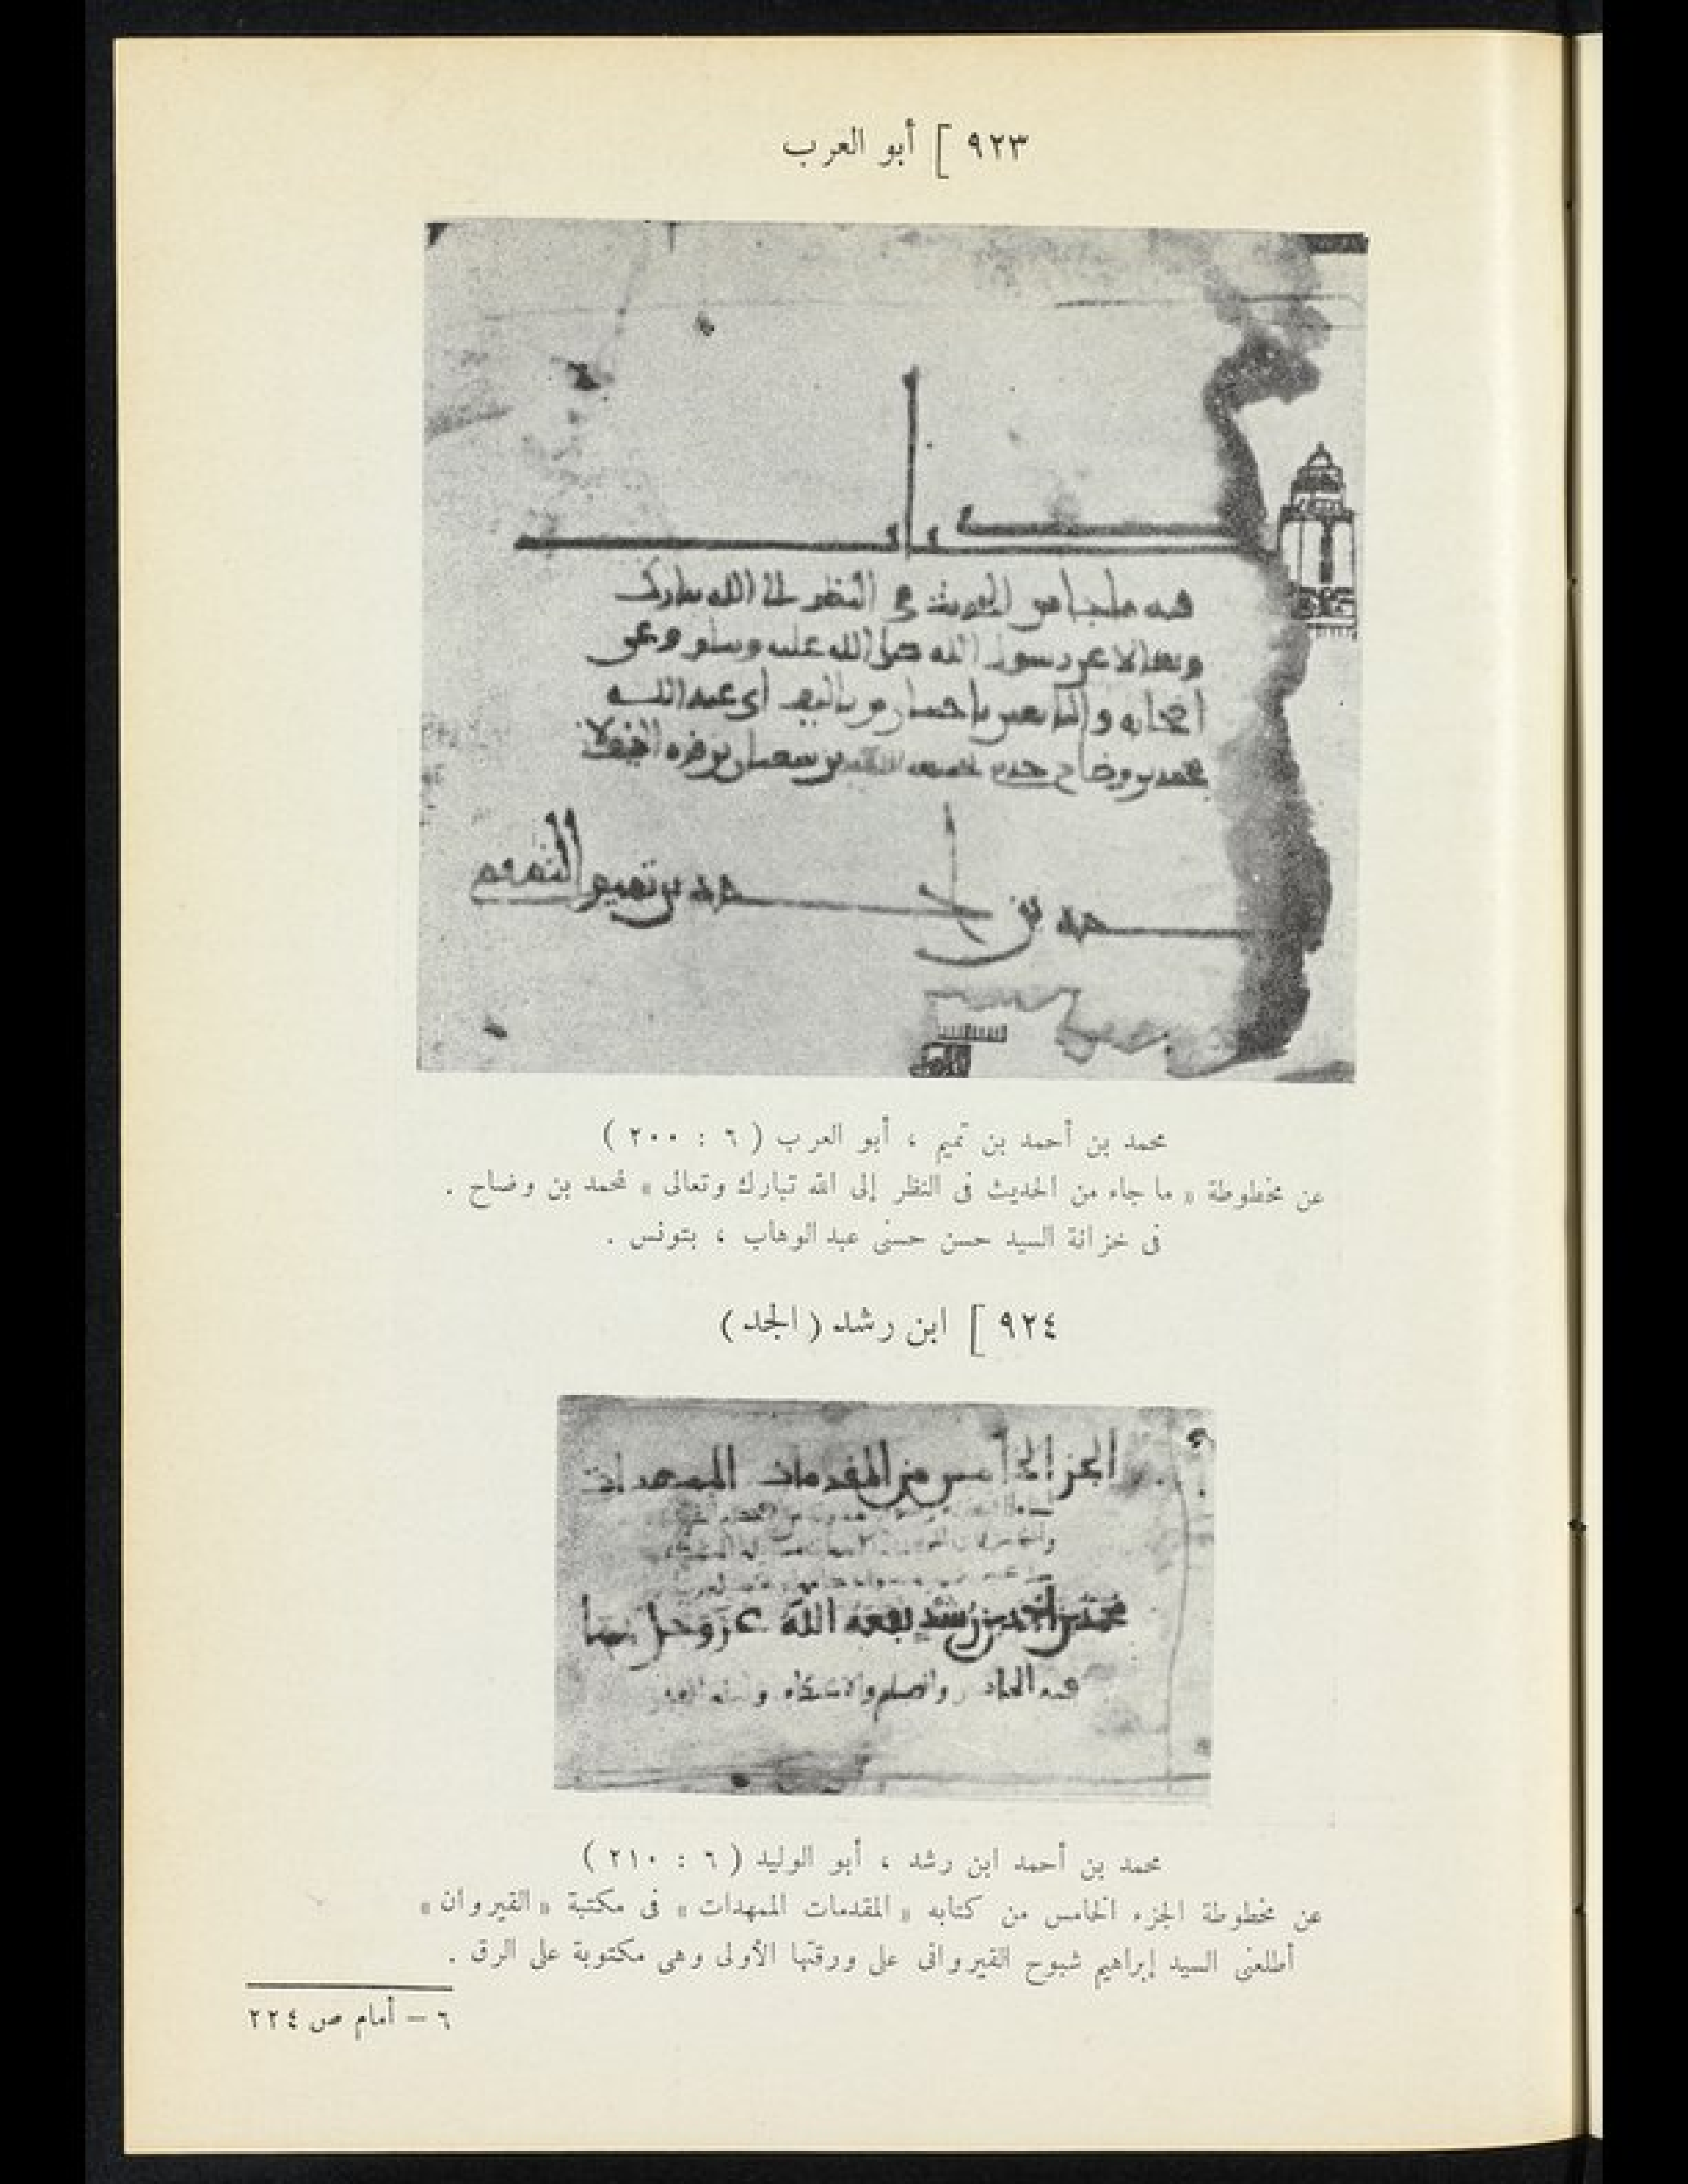 ٩٢٣ [ أبو العرب
فيه ما جا من الحديث في النظر الى الله تبارك
وتعالا عن رسول الله صلى الله عليه وسلم وعن
اصحابه والتابعين باحسان مما ابي عبد الله
محمد بن وضاح
محمد بن احمد بن تميم التميمي
محمد بن أحمد بن تميم ، أبو العرب ( ٦ : ٢٠٠ )
عن مخطوطة « ما جاء من الحديث فى النظر إلى الله تبارك وتعالى » لمحمد بن وضاح .
فى خزانة السيد حسن حسنى عبد الوهاب ، بتونس .
٩٢٤ [ ابن رشد ( الجد )
الجز الخامس من المقدمات الممهدات
محمد بن احمد بن رشد نفعه الله عز وجل بها
محمد بن أحمد ابن رشد ، أبو الوليد ( ٦ : ٢١٠ )
عن مخطوطة الجزء الخامس من كتابه « المقدمات الممهدات » فى مكتبة « القيروان »
أطلعنى السيد إبراهيم شبوح القيروانى على ورقتها الأولى وهى مكتوبة على الرق .
٦ – أمام ص ٢٢٤